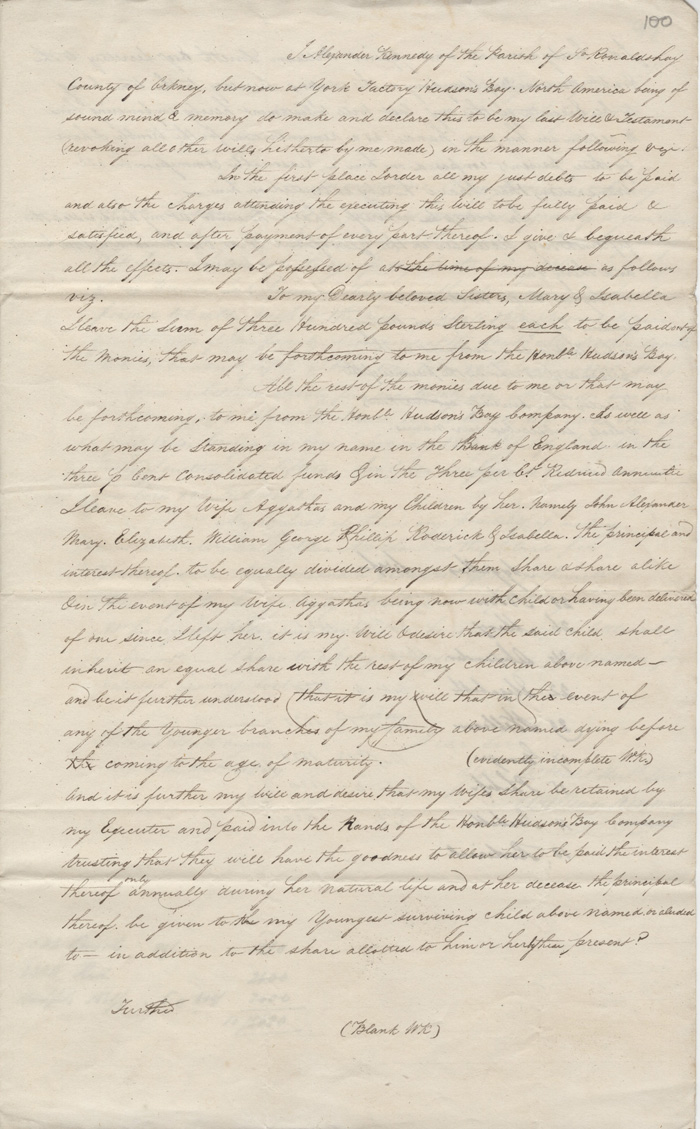 100
I Alexander Kennedy of the Parish of So Ronaldshay
County of Orkney, but now at York Factory Hudson's Bay. North America being of
sound mind & memory do make and declare this to be my last Will & Testament
(revoking all other wills hitherto by me made) in the manner following viz.
In the first place I order all my just debts to be paid
and also the charges attending the executing this will to be fully paid &
satisfied, and after payment of every part thereof. I give & bequeath
all the effects. I may be possessed of at the time of my decease as follows
viz. To my Dearly beloved Sisters, Mary & Isabella
I leave the Sum of three Hundred pounds Sterling each to be paid out of
the Monies, that may be forthcoming to me from the Honble Hudson's Bay.
All the rest of the monies due to me or that may
be forthcoming, to me from the Honble Hudson's Bay Company. As well as
what may be Standing in my name in the Bank of England in the
three p Cent Consolidated funds & in the Three per Ct Reduced Annuitie
I leave to my Wife Aggathas and my Children by her. Namely John Alexander
Mary. Elizabeth. William George Phillip Roderick & Isabella. The principal and
interest thereof. to be equally divided amongst them Share & share alike
& in the event of my Wife Aggathas being now with Child or having been delivered
of one since I left her. it is my Will & desire that the said child shall
inherit an equal share with the rest of my children above named —
and be it further understood (that it is my will that in) the event of
any of the Younger branches of my family above named dying before
th coming to the age of maturity. (evidently incomplete W.K.)
And it is further my will and desire that my Wifes Share be retained by
my Executer and paid into the Hands of the Honble Hudson's Bay Company
trusting that they will have the goodness to allow her to be paid the interest
thereof only annually during her natural life and at her decease the principal
thereof. be given to the my Youngest surviving child above named, or aluded
to — in addition to the share allotted to him or her by these present?
Further
(Blank W.K.)